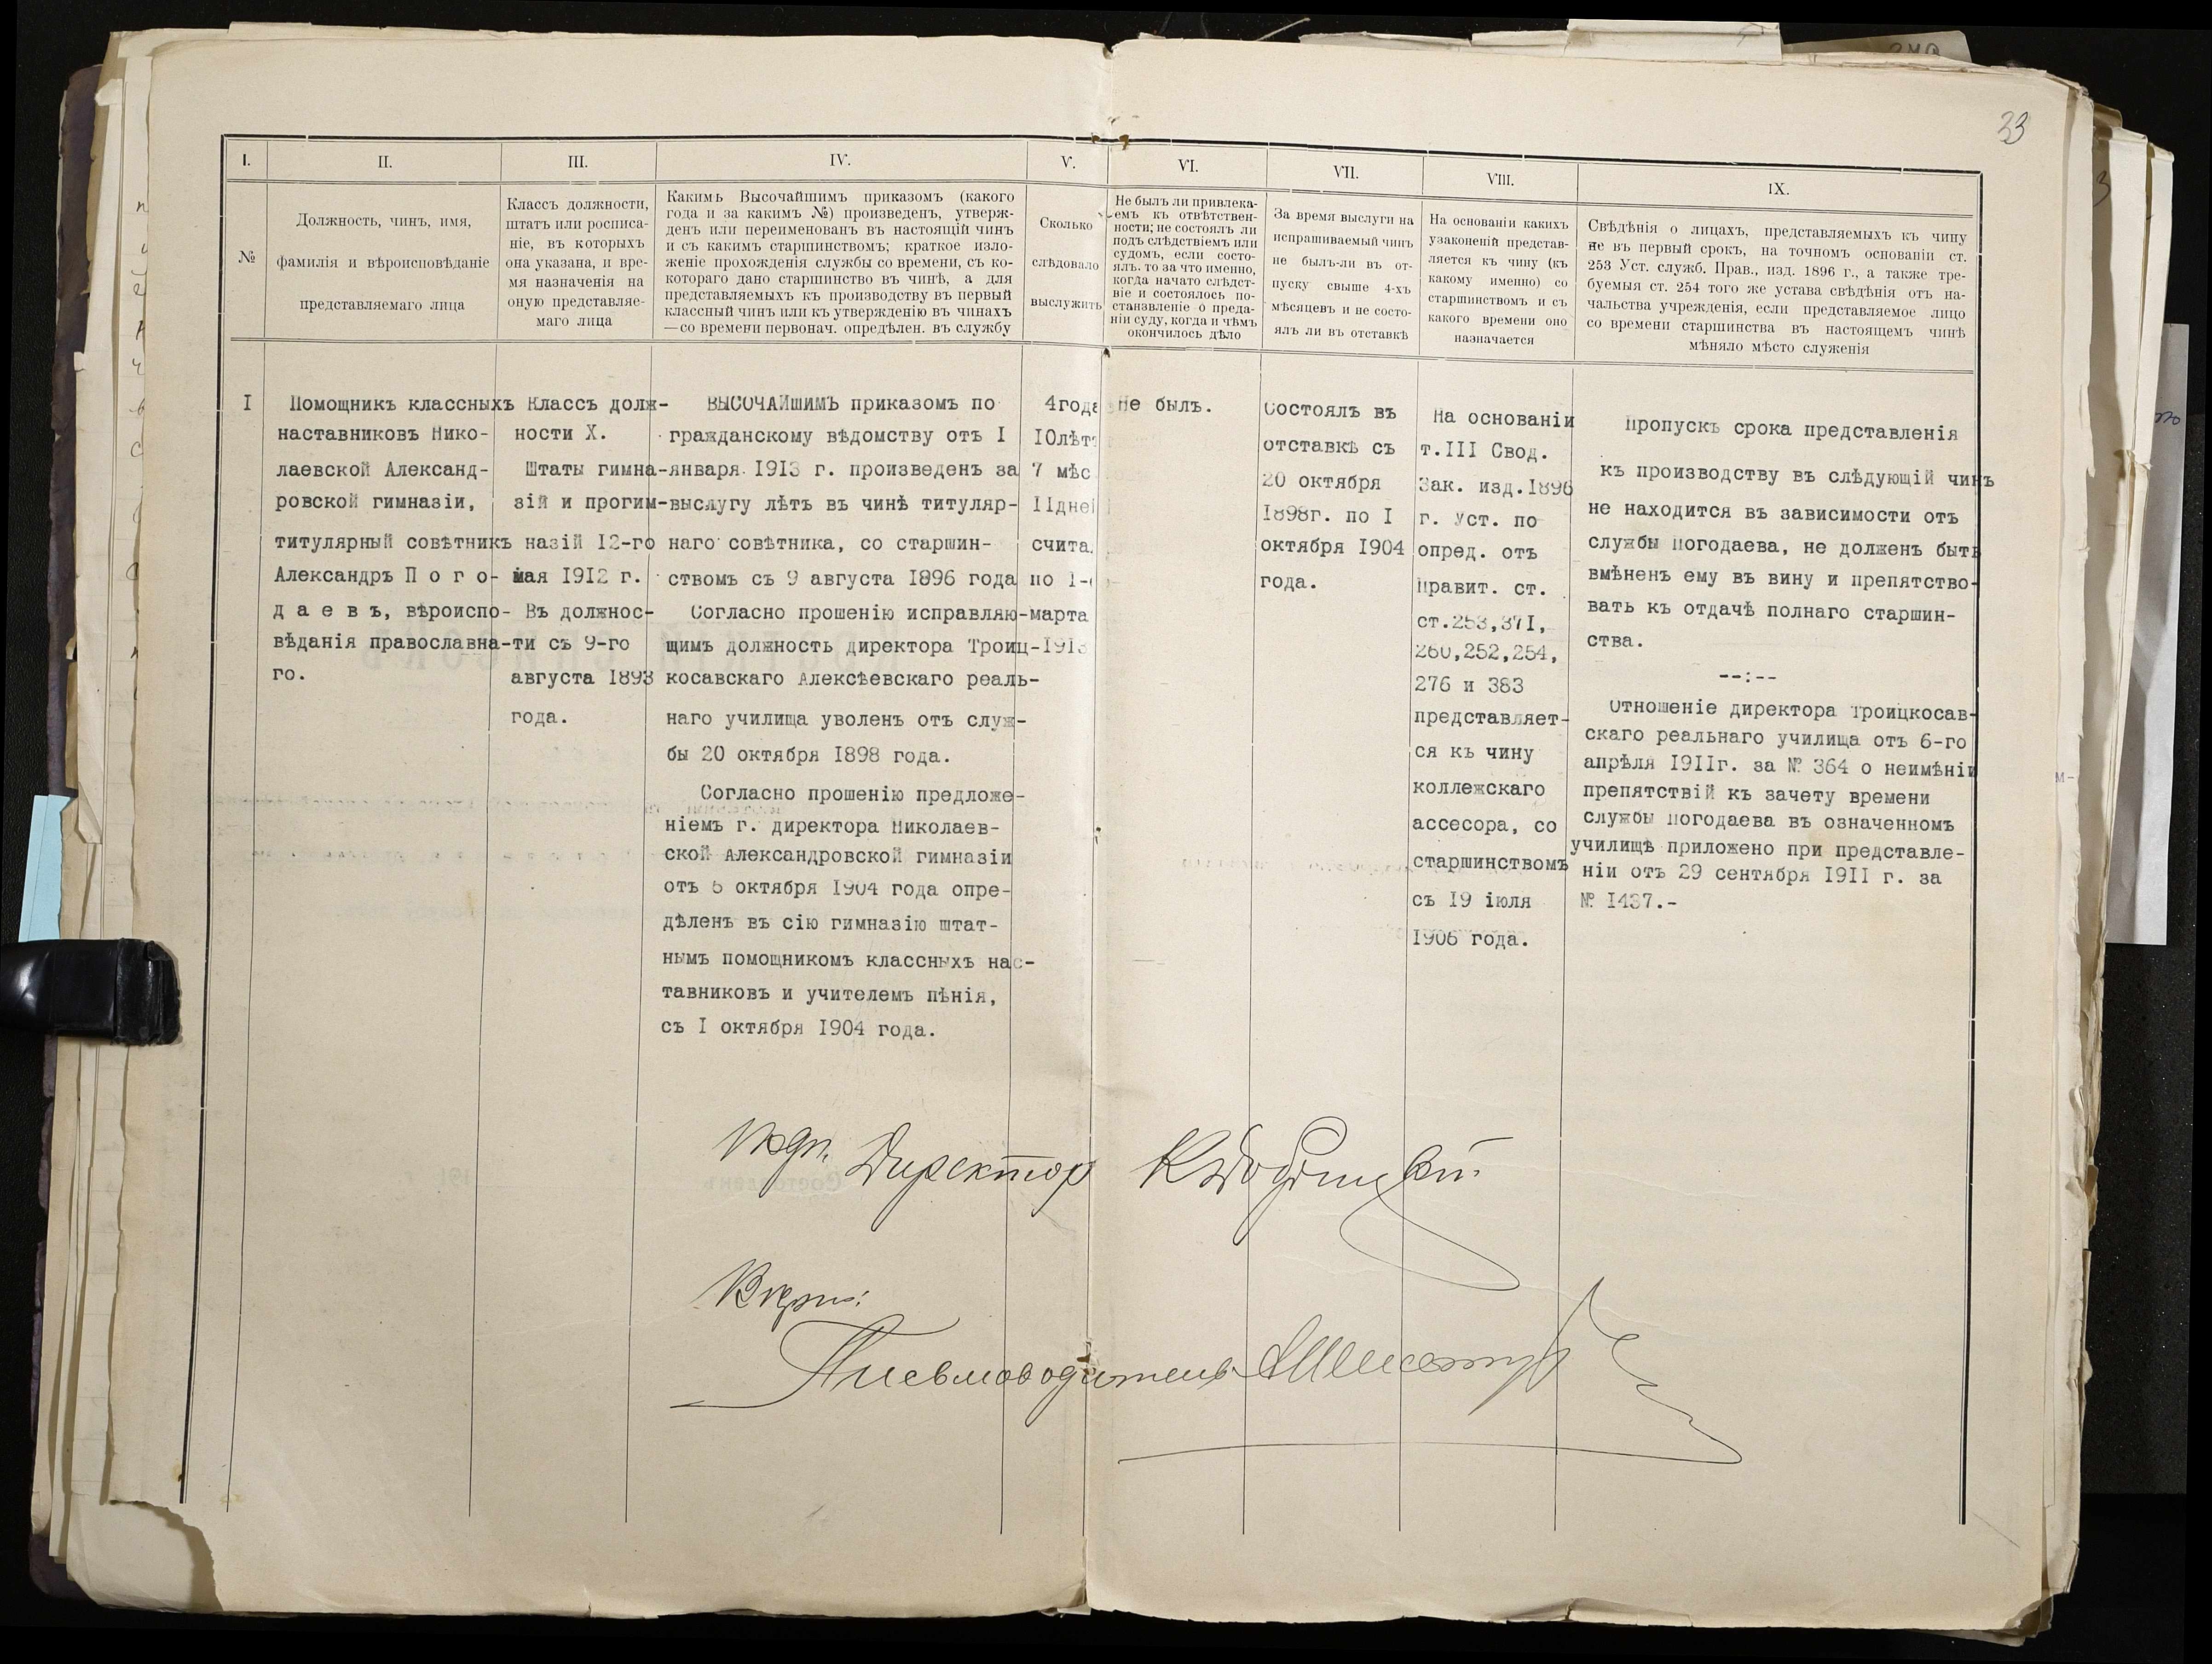 33
I.
II.
III.
IV.
V.
VI.
VII.
VIII.
IX.
№
Должность, чинъ, имя,
фамилія и вѣроисповѣданіе
представляемаго лица
Классъ должности,
штатъ или росписа-
ніе, въ которыхъ
она указана, и вре-
мя назначенія на
оную представляе-
маго лица
Какимъ Высочайшимъ приказомъ (какого
года и за какимъ №) произведенъ, утверж-
денъ или переименованъ въ настоящій чинъ
и съ какимъ старшинствомъ; краткое изло-
женіе прохожденія службы со времени, съ ко-
котораго дано старшинство въ чинѣ, а для
представляемыхъ къ производству въ первый
классный чинъ или къ утвержденію въ чинахъ
—со времени первонач. опредѣлен. въ службу
Сколько
слѣдовало
выслужить
Не былъ ли привлека-
емъ къ отвѣтствен-
ности; не состоялъ ли
подъ слѣдствіемъ или
судомъ, если состо-
ялъ. то за что именно,
когда начато слѣдст-
віе и состоялось по-
становленіе о преда-
ніи суду, когда и чѣмъ
окончилось дѣло
За время выслуги на
испрашиваемый чинъ
не былъ-ли въ от-
пуску свыше 4-хъ
мѣсяцевъ и не состо-
ялъ ли въ отставкѣ
На основаніи какихъ
узаконеній представ-
ляется къ чину (къ
какому именно) со
старшинствомъ и съ
какого времени оно
назначается
Свѣдѣнія о лицахъ, представляемыхъ къ чину
не въ первый срокъ, на точномъ основаніи ст.
253 Уст. служб. Прав., изд. 1896 г., а также тре-
буемыя ст. 254 того же устава свѣдѣнія отъ на-
чальства учрежденія, если представляемое лицо
со времени старшинства въ настоящемъ чинѣ
мѣняло мѣсто служенія
I
Помощникъ классныхъ
наставниковъ Нико-
лаевской Александ-
ровской гимназіи,
титулярный совѣтникъ
Александръ П о г о-
д а е в ъ, вѣроиспо-
вѣданія православна-
го.
Классъ долж-
ности X.
Штаты гимна-
зій и прогим-
назій I2-го
мая I9I2 г.
Въ должнос-
ти съ 9-го
августа I893
года.
ВЫСОЧАЙШИМЪ приказомъ по
гражданскому вѣдомству отъ I
января I9I3 г. произведенъ за
выслугу лѣтъ въ чинѣ титуляр-
наго совѣтника, со старшин-
ствомъ съ 9 августа I896 года
Согласно прошенію исправляю-
щимъ должность директора Троиц-
косавскаго Алексѣевскаго реаль-
наго училища уволенъ отъ служ-
бы 20 октября I898 года.
Согласно прошенію предложе-
ніемъ г. директора Николаев-
ской Александровской гимназіи
отъ 6 октября I904 года опре-
дѣленъ въ сію гимназію штат-
нымъ помощникомъ классныхъ нас-
тавниковъ и учителемъ пѣнія,
съ I октября I904 года.
4года
I0лѣтъ
7 мѣс.
IIдней
счита
по 1-
марта
I9I3
Не былъ.
Состоялъ въ
отставкѣ съ
20 октября
I898г. по I
октября I904
года.
На основаніи
т.III Свод.
Зак. изд.I896
г. Уст. по
опред. отъ
Правит. ст.
ст.253,37I,
260,252,254,
276 и 383
представляет-
ся къ чину
коллежскаго
ассесора, со
старшинствомъ
съ I9 іюля
I906 года.
Пропускъ срока представленія
къ производству въ слѣдующій чинъ
не находится въ зависимости отъ
службы Погодаева, не долженъ быть
вмѣненъ ему въ вину и препятство-
вать къ отдачѣ полнаго старшин-
ства.
--:--
Отношеніе директора Троицкосав-
скаго реальнаго училища отъ 6-го
апрѣля I9IIг. за № 364 о неимѣніи
препятствій къ зачету времени
службы Погодаева въ означенномъ
училищѣ приложено при представле-
ніи отъ 29 сентября I9II г. за
№ I437.-
Директор
Вѣрно:
Письмоводитель